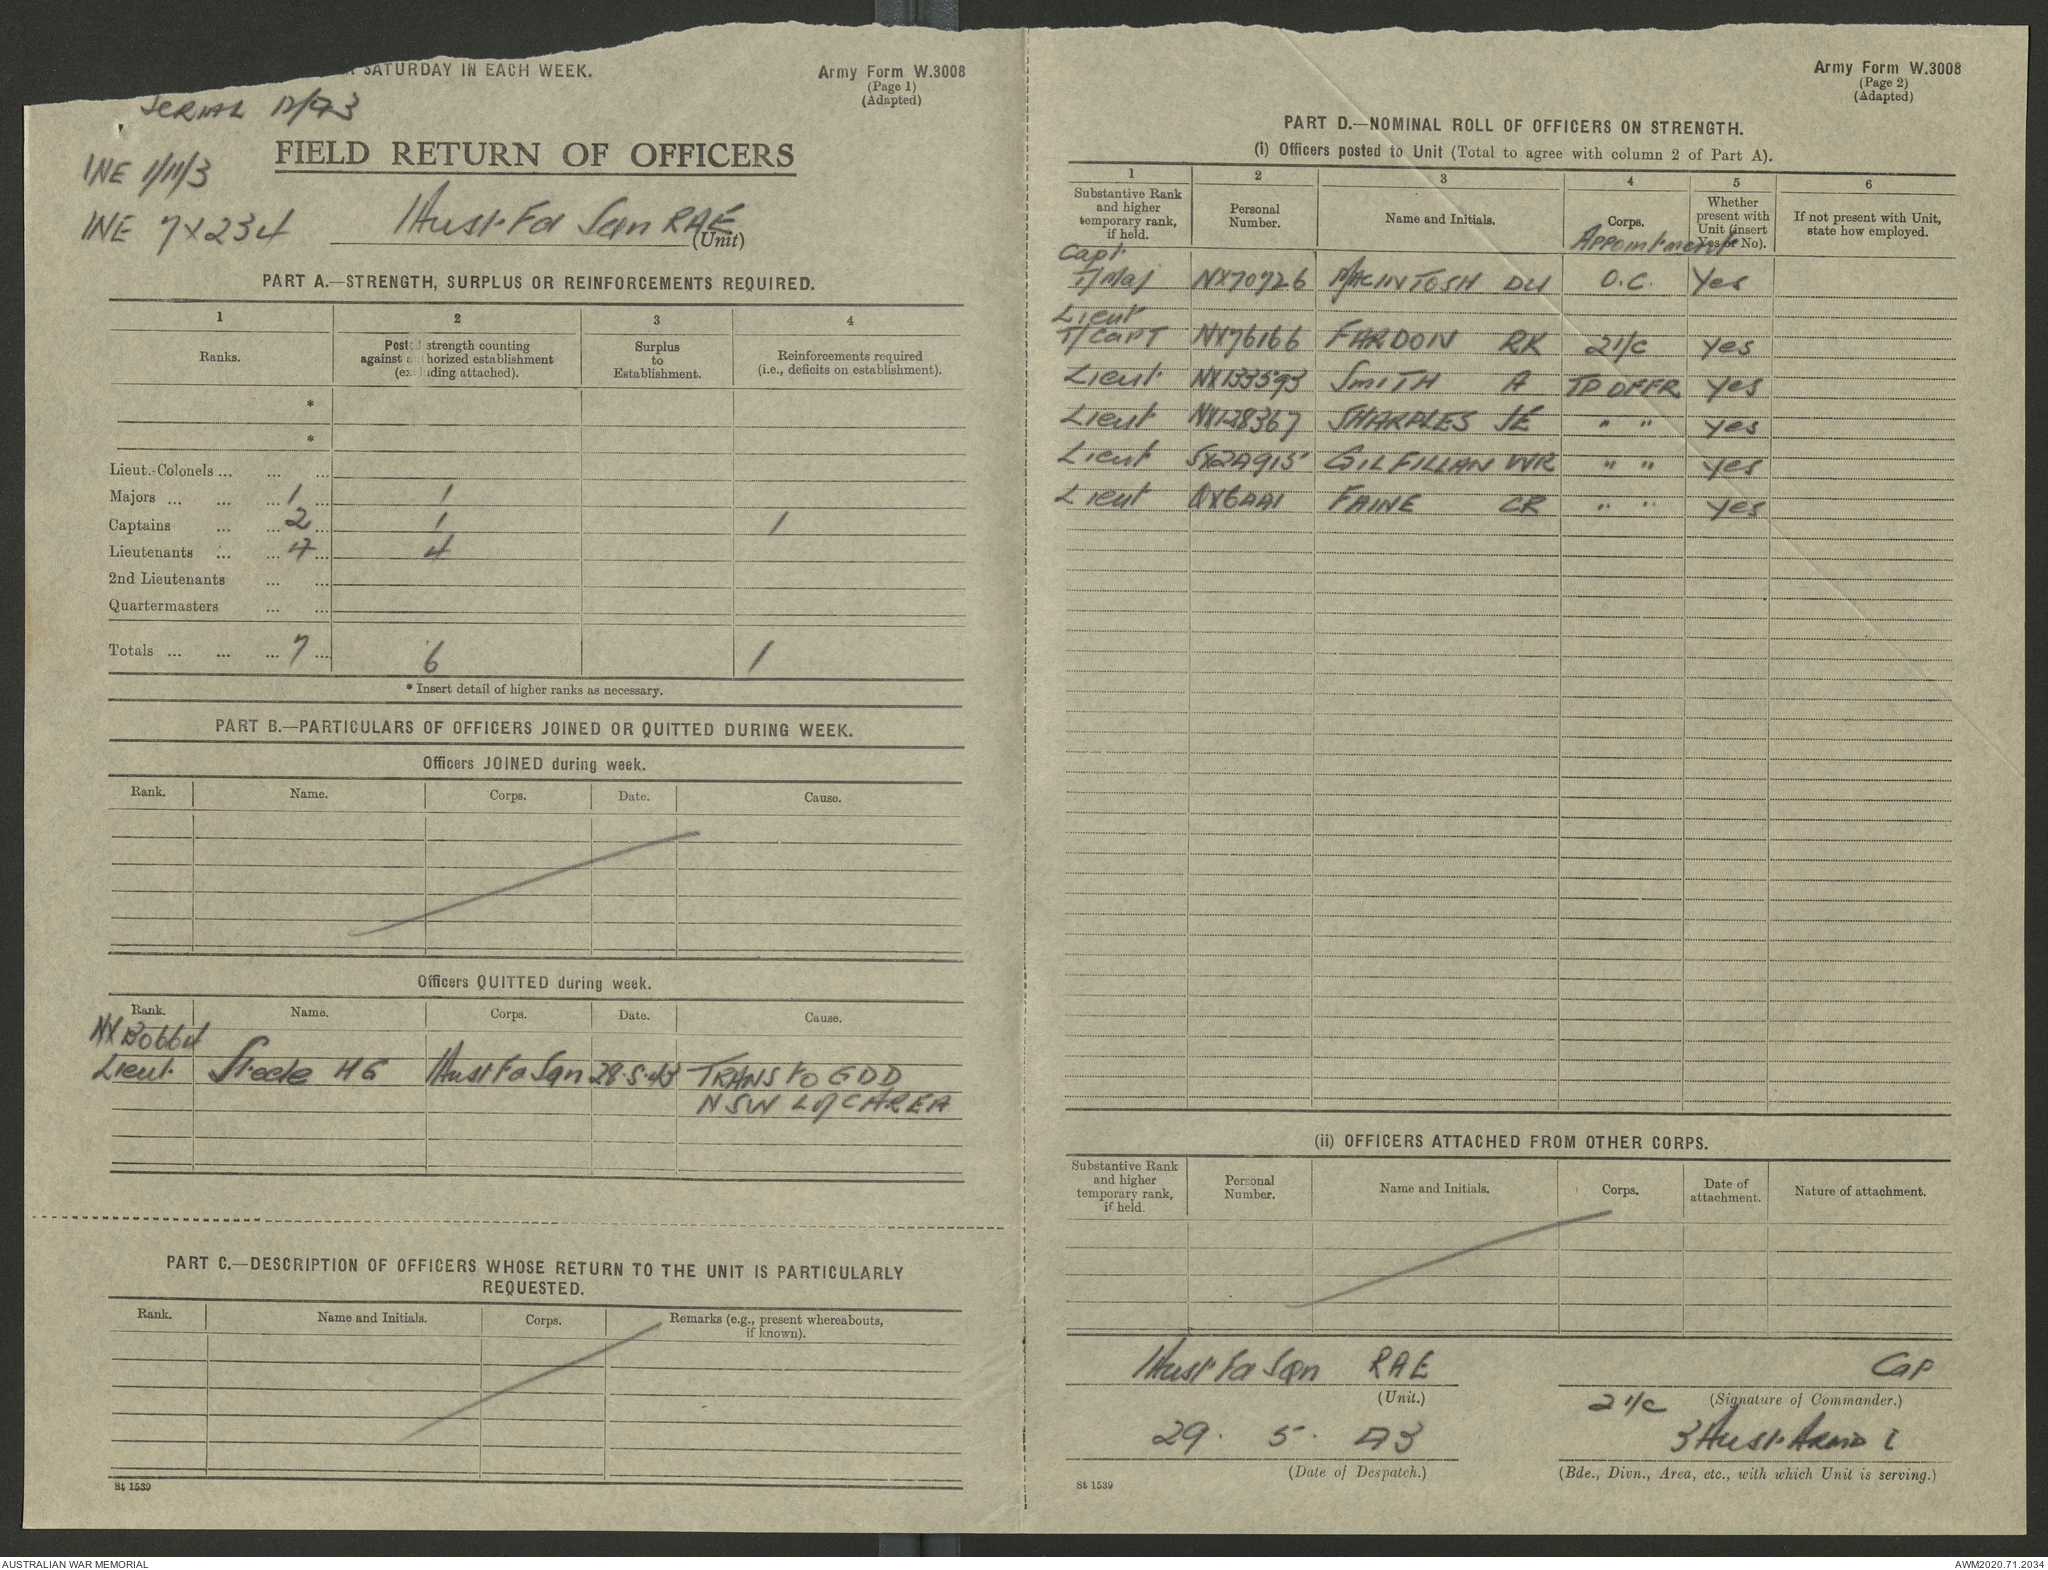 SATURDAY IN EACH WEEK.
Army Form W.3008
(Page 1)
(Adapted)
SERIAL 12/43
FIELD RETURN OF OFFICERS
1 Aust Fd Sqn RAE
(Unit)
PART A.—STRENGTH, SURPLUS OR REINFORCEMENTS REQUIRED.
1 2 3 4
Ranks. Posted strength counting against authorized establishment (excluding attached). Surplus to Establishment. Reinforcements required (i.e., deficits on establishment).
*
*
Lieut.-Colonels ... ... ...
Majors ... ... ... 1 ... 1
Captains ... ... 2 ... 1 1
Lieutenants ... ... 4 ... 4
2nd Lieutenants ... ...
Quartermasters ... ...
Totals ... ... ... 7 ... 6 1
* Insert detail of higher ranks as necessary.
PART B.—PARTICULARS OF OFFICERS JOINED OR QUITTED DURING WEEK.
Officers JOINED during week.
Rank. Name. Corps. Date. Cause.
Officers QUITTED during week.
Rank. Name. Corps. Date. Cause.
Lieut. Steele HG 1 Aust Fd Sqn 28.5.43 TRANS to GDD
NSW L of C AREA
PART C.—DESCRIPTION OF OFFICERS WHOSE RETURN TO THE UNIT IS PARTICULARLY
REQUESTED.
Rank. Name and Initials. Corps. Remarks (e.g., present whereabouts, if known).
St 1539
Army Form W.3008
(Page 2)
(Adapted)
PART D.—NOMINAL ROLL OF OFFICERS ON STRENGTH.
(i) Officers posted to Unit (Total to agree with column 2 of Part A).
1 2 3 4 5 6
Substantive Rank and higher temporary rank, if held. Personal Number. Name and Initials. Corps. Whether present with Unit (insert Yes or No). If not present with Unit, state how employed.
Appointment
Capt.
T/Maj NX70726 MACINTOSH DU O.C. Yes
Lieut
T/CAPT NX76166 FARDON RK 2 i/c Yes
Lieut NX133593 SMITH A TP OFFR Yes
Lieut NX128367 SHARPLES JE " " Yes
Lieut SX24915 GILFILLAN WR " " Yes
Lieut FAINE CR " " Yes
(ii) OFFICERS ATTACHED FROM OTHER CORPS.
Substantive Rank and higher temporary rank, if held. Personal Number. Name and Initials. Corps. Date of attachment. Nature of attachment.
1 Aust Fd Sqn RAE
(Unit.)
Cap
2 i/c (Signature of Commander.)
29. 5. 43
(Date of Despatch.)
3 Aust. Armd
(Bde., Divn., Area, etc., with which Unit is serving.)
St 1539
AUSTRALIAN WAR MEMORIAL
AWM2020.71.2034